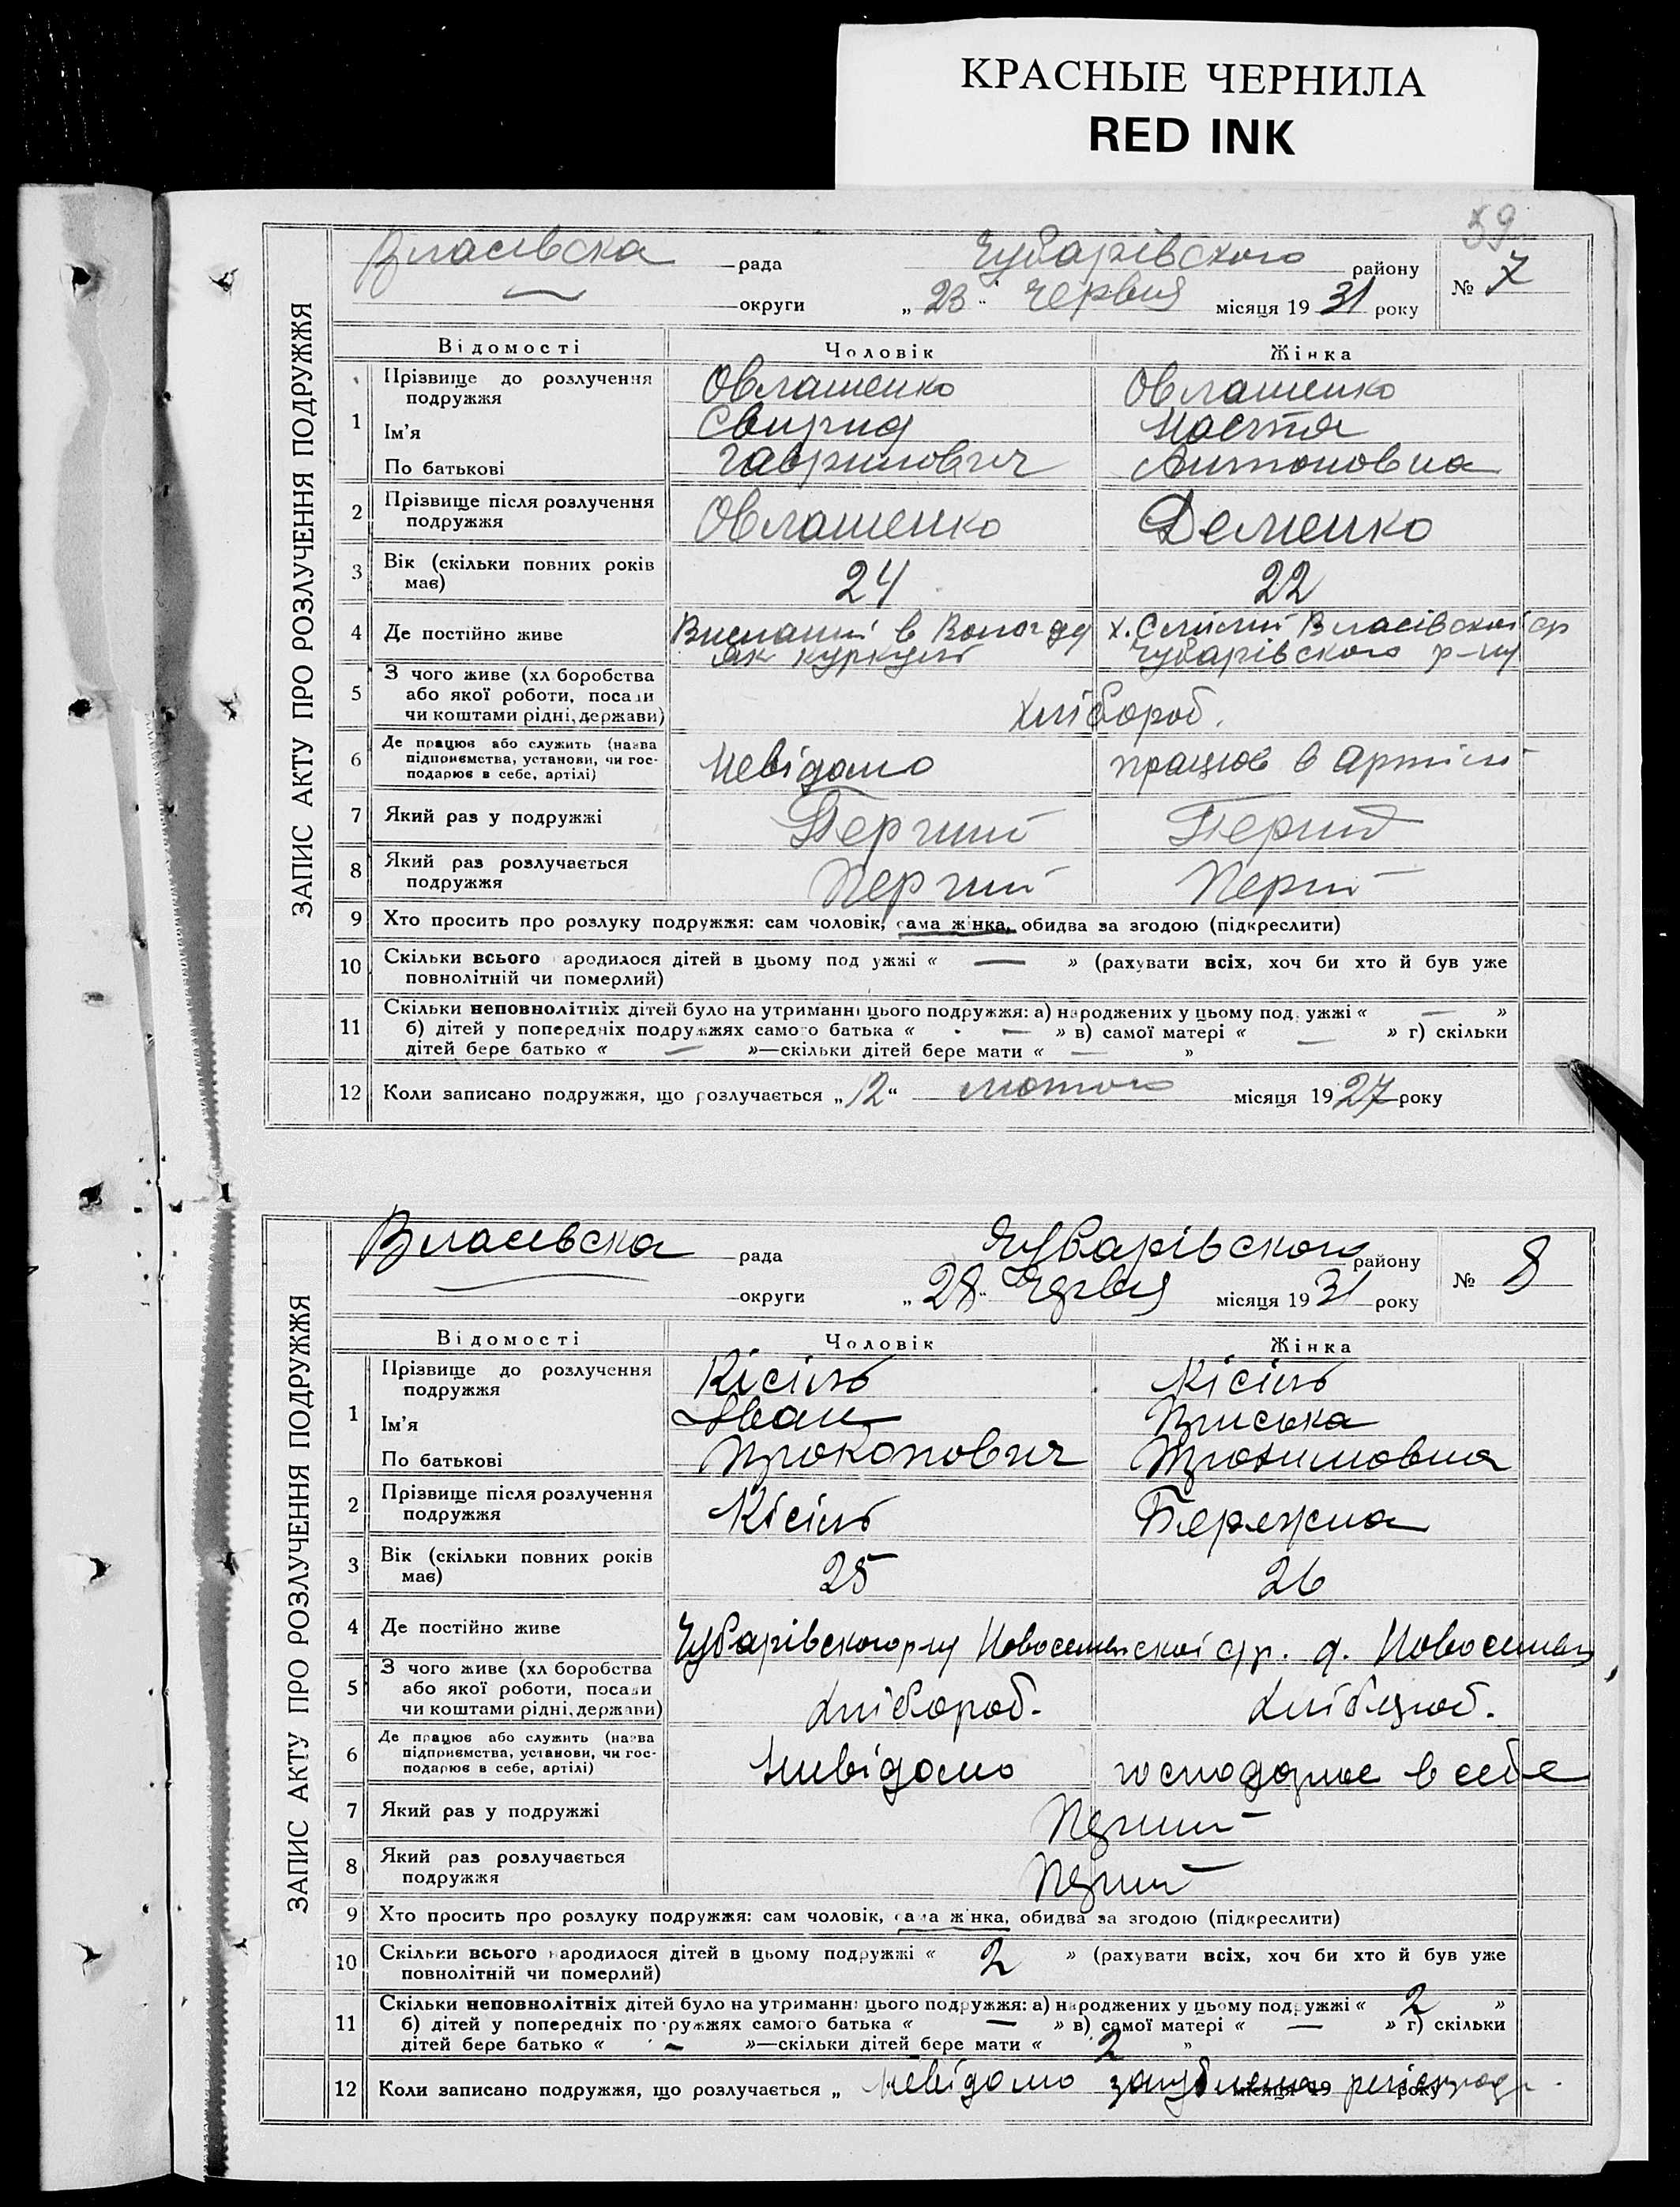 КРАСНЫЕ ЧЕРНИЛА
RED INK
59
ЗАПИС АКТУ ПРО РОЗЛУЧЕННЯ ПОДРУЖЖЯ
Власівска рада Чубарівского району № 7
округи „ 23 “ Червня місяця 19 31 року
Відомості Чоловік Жінка
1 Прізвище до розлучення подружжя Овлашенко Овлашенко
Ім'я Свирид Настя
По батькові Гаврилович Антоновна
2 Прізвище після розлучення подружжя Овлашенко Деменко
3 Вік (скільки повних років має) 24 22
4 Де постійно живе Висланий в Вологду х. Власівскої ср
як куркуль Чубарівского р-ну
5 З чого живе (хл боробства
або якої роботи, посади Хлібороб.
чи коштами рідні, держави)
6 Де працює або служить (назва
підприємства, установи, чи гос- Невідомо працює в Артілі
подарює в себе, артілі)
7 Який раз у подружжі Перший Перший
8 Який раз розлучається
подружжя Перший Перший
9 Хто просить про розлуку подружжя: сам чоловік, сама жінка, обидва за згодою (підкреслити)
10 Скільки всього народилося дітей в цьому подружжі « — » (рахувати всіх, хоч би хто й був уже
повнолітній чи померлий)
11 Скільки неповнолітніх дітей було на утриманні цього подружжя: а) народжених у цьому подружжі « — »
б) дітей у попередніх подружжях самого батька « — » в) самої матері « — » г) скільки
дітей бере батько « — »—скільки дітей бере мати « — »
12 Коли записано подружжя, що розлучається „ 12 “ лютого місяця 19 27 року
ЗАПИС АКТУ ПРО РОЗЛУЧЕННЯ ПОДРУЖЖЯ
Власівска рада Чубарівского району № 8
округи „ 28 “ Червня місяця 19 31 року
Відомості Чоловік Жінка
1 Прізвище до розлучення подружжя Кісіль Кісіль
Ім'я Іван Приська
По батькові Прокопович
2 Прізвище після розлучення подружжя Кісіль Бережна
3 Вік (скільки повних років має) 25 26
4 Де постійно живе Чубарівского р-ну Новоселицкої с/р.
5 З чого живе (хл боробства
або якої роботи, посади Хлібороб. Хлібороб.
чи коштами рідні, держави)
6 Де працює або служить (назва
підприємства, установи, чи гос- Невідомо господарює в себе
подарює в себе, артілі)
7 Який раз у подружжі Перший
8 Який раз розлучається
подружжя Перший
9 Хто просить про розлуку подружжя: сам чоловік, сама жінка, обидва за згодою (підкреслити)
10 Скільки всього народилося дітей в цьому подружжі « 2 » (рахувати всіх, хоч би хто й був уже
повнолітній чи померлий)
11 Скільки неповнолітніх дітей було на утриманні цього подружжя: а) народжених у цьому подружжі « 2 »
б) дітей у попередніх подружжях самого батька « — » в) самої матері « — » г) скільки
дітей бере батько « - »—скільки дітей бере мати « 2 »
12 Коли записано подружжя, що розлучається „ Невідомо загублена місяця 19 року